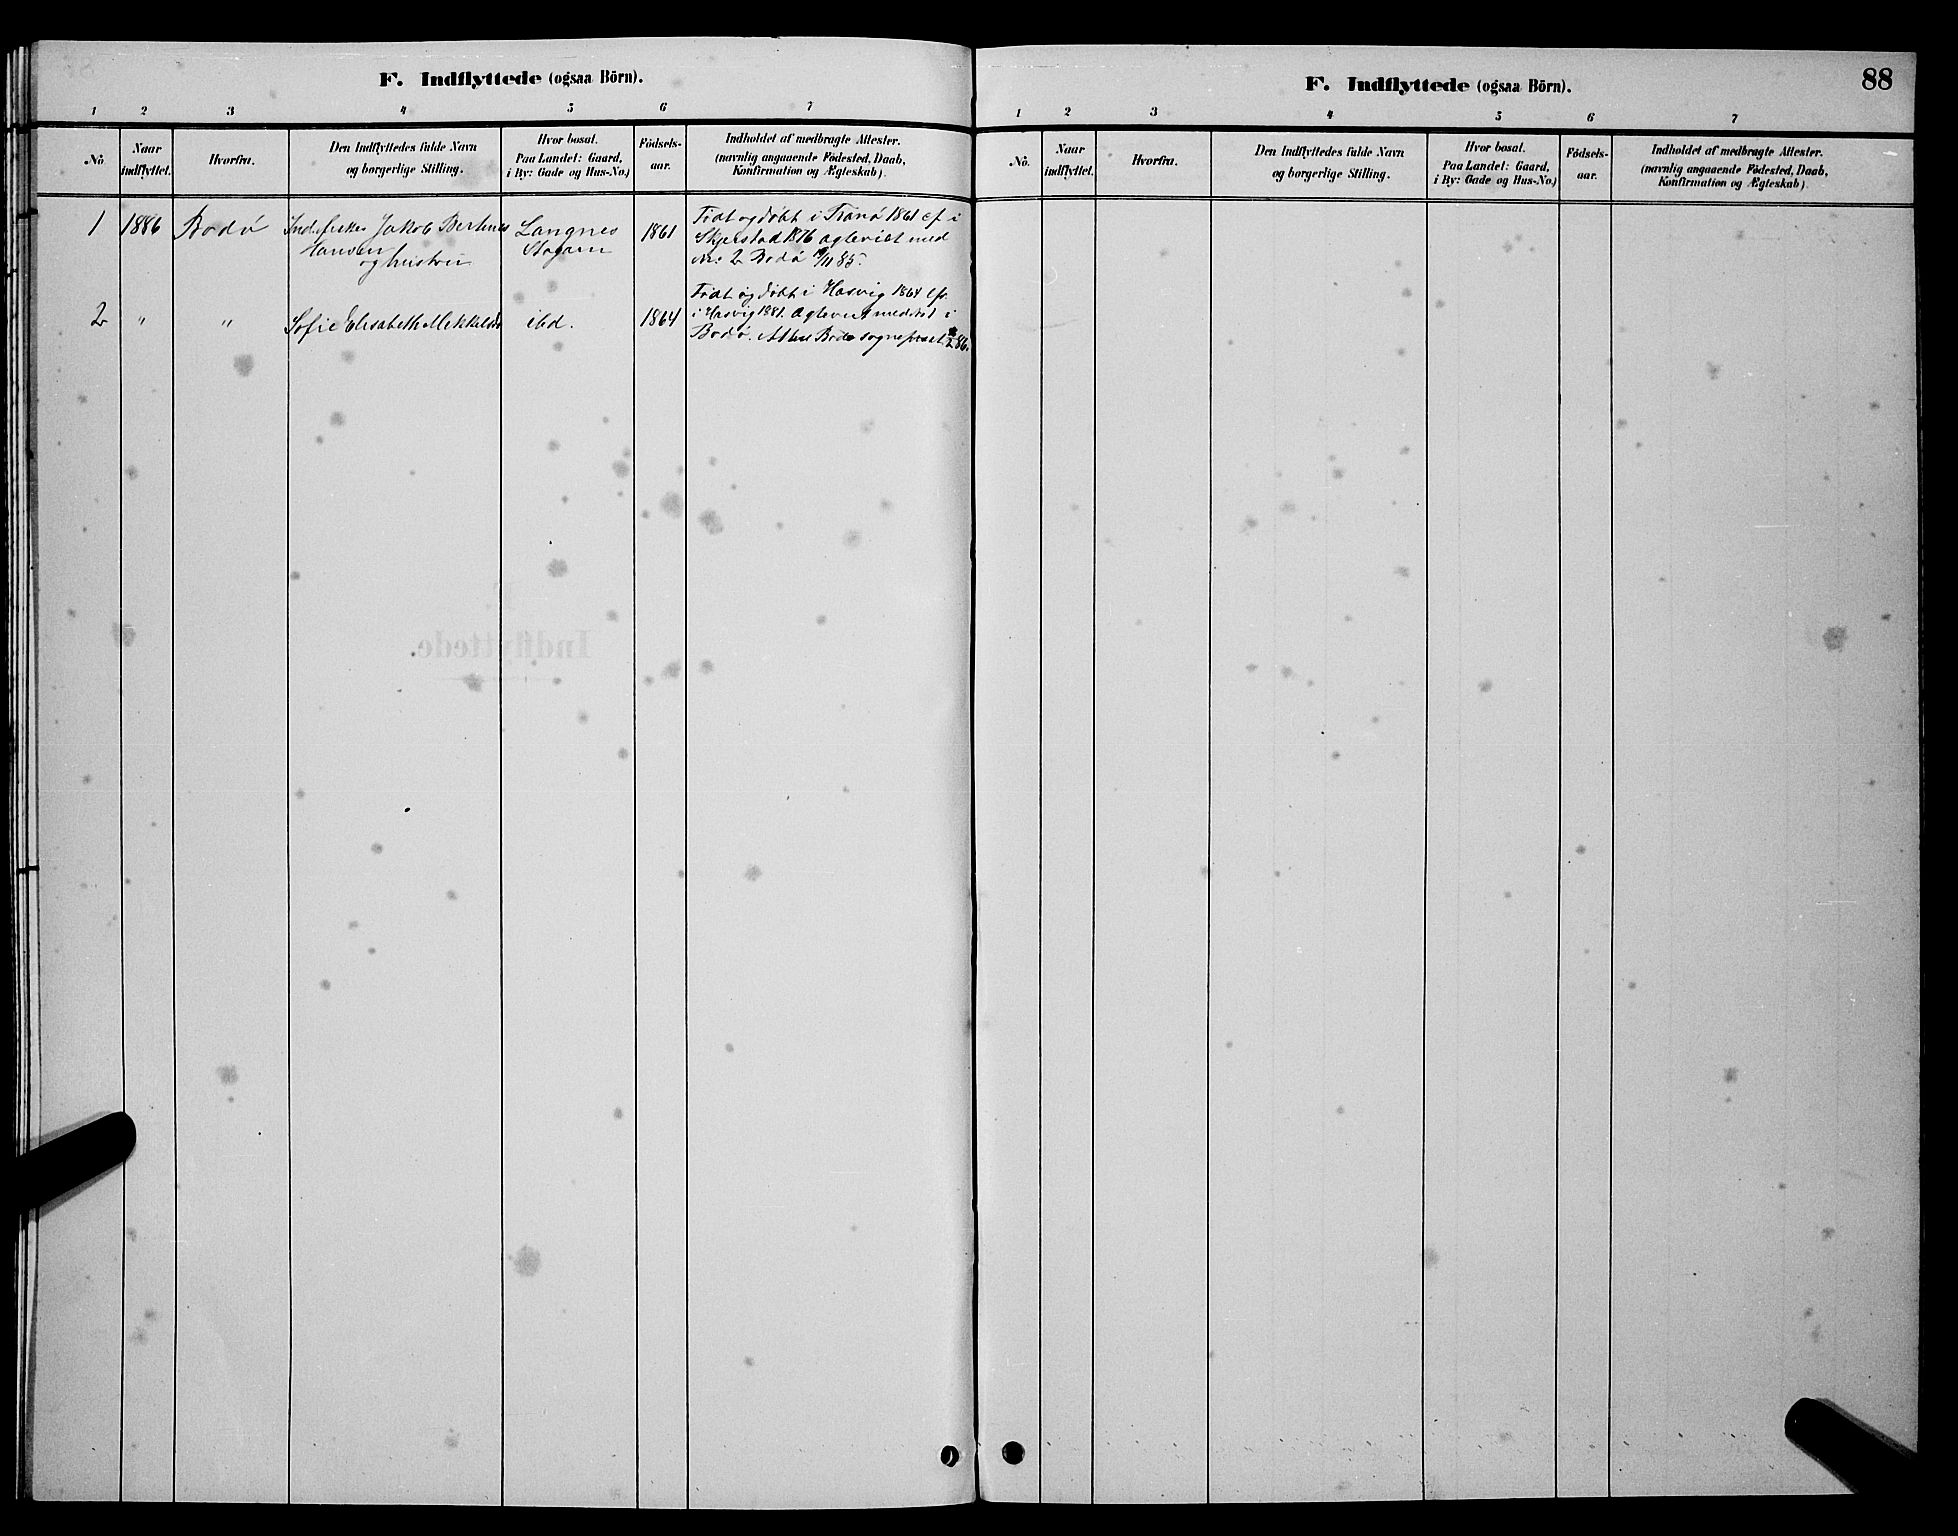 F. Indflyttede (ogsaa Börn).
1 2 3 4 5 6 7
No. Naar indflyttet. Hvorfra. Den Indflyttedes fulde Navn og borgerlige Stilling. Hvor bosat. Paa Landet: Gaard, i By: Gade og Hus-No.) Födsels-aar. Indholdet af medbragte Attester. (navnlig angaaende Födested, Daab, Konfirmation og Ægteskab).
1 1886 Bodö Jakob Berteus Langnes 1861 Födt og döbt i Tranö 1861 cf. i
Hansen Skjerstad 1876 Ægteviet med
og hustru No 2 Bodö /11 85.
Födt og döbt i Hasvig 1864 cfr.
2 " " Sofie Elisabeth Mikkelsd ibd. 1864 i Hasvig 1881. Ægteviet med No 1 i
Bodö. Attest Bodö sognepræst 86.
88
F. Indflyttede (ogsaa Börn).
1 2 3 4 5 6 7
No. Naar indflyttet. Hvorfra. Den Indflyttedes fulde Navn og borgerlige Stilling. Hvor bosat. Paa Landet: Gaard, i By: Gade og Hus-No.) Födsels-aar. Indholdet af medbragte Attester. (navnlig angaaende Födested, Daab, Konfirmation og Ægteskab).